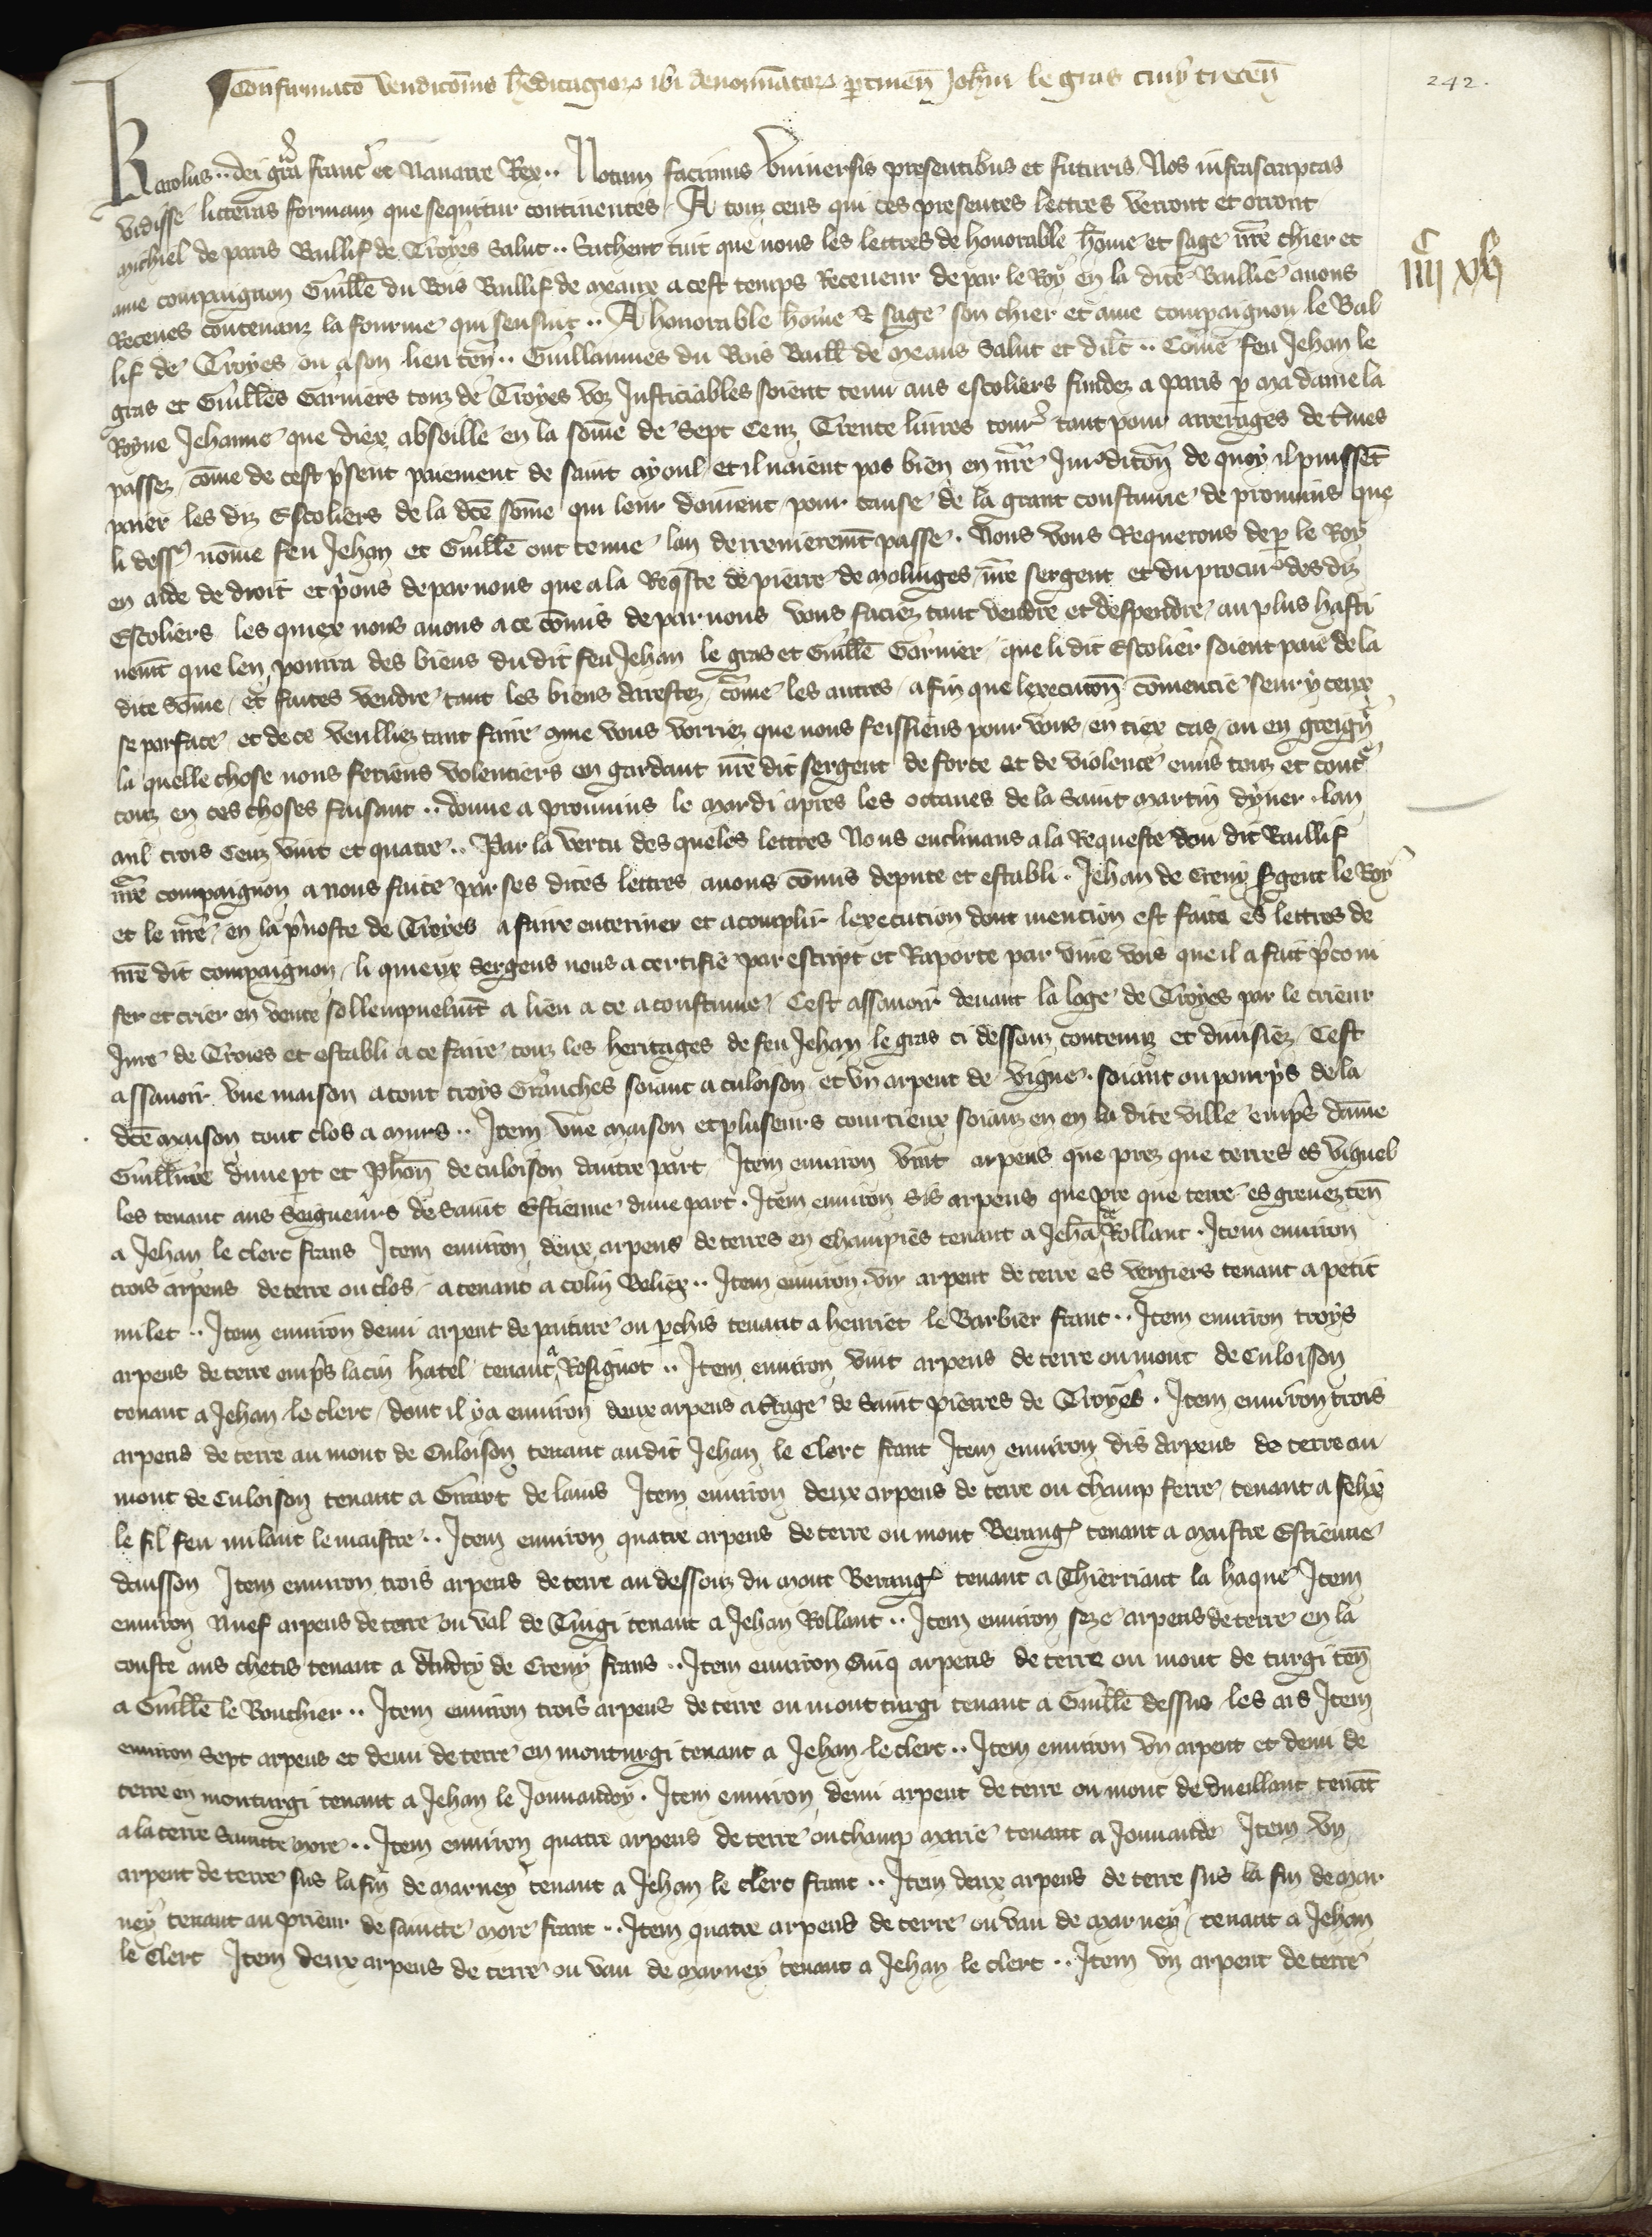 Confirmatio venditionis heditagiorum ibi denominatorum ptinen Johni le gras civi trecen
242.
Karolus .. dei gra franc et Navarre Rex .. Notum facimus Universis presentibus et futuris Nos infrascriptas
vidisse litteras formam que sequitur continentes A touz ceus qui ces presentes lettres verront et orront
michiel de paris Baillif de Troyes Salut .. Sachent tuit que nous les lettres de honorable home et sage nre chier et
C
ame compaignon Guille du Bois Baillif de meaux a cest temps Receveur de par le Roy en la dite Baillie avons
IIII XV
Receues contenanz la fourme qui sensuit .. A honorable home & sage son chier et ame compaignon le Bal
lif de Troyes ou a son lieu ten .. Guillaumes du Bois Baill de meaus Salut et dilt .. Come feu Jehan le
gras et Guilles Garniers touz de Troyes voz Justiciables soient tenu aus escoliers fundez a paris p ma dame la
Royne Jehanne que diex absoille en la some de Sept Cenz Trente livres tour tant pour arrerages de tmes
passez come de cest psent paiement de saint ayoul et il naient pas bien en nre Jurditon de quoy il puissent
paier les diz Escoliers de la dte some qui leur doivent pour cause de la grant coustume de provuins que
li dess nome feu Jehan et Guille ont tenue lan derrenieremt passe . Nous vous Requerons de p le Roy
en aide de droit et pons de par nous que a la Reqste de pierre de molinges nre sergent et du procur des diz
Escoliers les quiex nous avons a ce comis de par nous vous faciez tant vendre et despendre au plus hasti
vemt que len pourra des biens du dit feu Jehan le gras et Guille Garnier que li dit Escolier soient paie de la
dite Some et faites vendre tant les biens arrestez come les autres a fin que lexecution comencie seur yceux
se parface et de ce veulliez tant faire que vous vorriez que nous feissiens pour vous en tiex cas ou en greign
la quelle chose nous feriens volentiers en gardant nre dit sergent de force et de violence envs touz et cont
touz en ces choses faisant .. donne a provuins le mardi apres les octaves de la Saint martin dyver . lan
mil trois Cenz vint et quatre .. Par la vertu des queles lettres Nous enclinans a la Requeste dou dit Baillif
nre compaignon a nous faite par ses dites lettres avons comis depute et establi . Jehan de Creny Sgent le Roy
et le nre en la pvoste de Troyes a faire enteriner et acomplir lexecution dont mencion est faite es lettres de
nre dit compaignon li quieux Sergens nous a certifie par escript et Raporte par vive vois que il a fait pconi
ser et crier en vente sollempnelmt a lieu a ce acoustume Cest assavoir devant la loge de Troyes par le crieur
Jure de Troies et establi a ce faire touz les heritages de feu Jehan le gras ci dessouz contenuz et divisiez Cest
assavoir une maison a tout troys Granches soiant a culoison et un arpent de vigne . soiant ou pourps de la
dte maison tout clos a murs .. Item une maison et pluseurs courtieux soianz en en la dite ville emps dame
Guillmre dune pt et Phon de culoison dautre part Item environ vint arpens que prez que terres es vignel
les tenant aus Seigneurs de Saint Estienne dune part . Item environ Sis arpens que pre que terre es grevez ten
a Jehan le clerc frans Item environ deux arpens de terres en champies tenant a Jeha de Rollant . Item environ
trois arpens de terre ou clos a tenant a colin Beliex .. Item environ . un arpent de terre es vergiers tenant a petit
milet .. Item environ demi arpent de pature ou pchis tenant a henriet le Barbier franc .. Item environ troys
arpens de terre emps lacin hatel tenant a Rosignot .. Item environ vint arpens de terre ou mont de Culoison
tenant a Jehan le clerc dont il y a environ deux arpens a trage de Saint pierres de Troyes . Item environ trois
arpens de terre au mont de Culoison tenant audit Jehan le Clerc franc Item environ dis arpens de terre au
mont de Culoison tenant a Girart de lanis Item environ deux arpens de terre ou champ ferre tenant a felix
le fil feu milant le maistre .. Item environ quatre arpens de terre ou mont Berang tenant a maistre Estienne
dausson Item environ trois arpens de terre au dessouz du mont Berang tenant a Thierriant la haque Item
environ Nuef arpens de terre ou val de Turgi tenant a Jehan Rollant .. Item environ seze arpens de terre en la
couste aus chetis tenant a Andry de Creny frans .. Item environ Cinq arpens de terre ou mont de turgi ten
a Guille le Bouchier .. Item environ trois arpens de terre ou mont turgi tenant a Guille dessus les ars Item
environ Sept arpens et demi de terre en monturgi tenant a Jehan le clerc .. Item environ un arpent et demi de
terre en monturgi tenant a Jehan le Jouvandoy . Item environ demi arpent de terre ou mont de dueillant tenat
a la terre Saincte more .. Item environ quatre arpens de terre ou champ marie tenant a Jouvande Item un
arpent de terre sus la fin de marney tenant a Jehan le clerc franc .. Item deux arpens de terre sus la fin de mar
ney tenant au prieur de saincte more franc .. Item quatre arpens de terre ou vau de marney tenant a Jehan
le Clerc Item deux arpens de terre ou vau de marney tenant a Jehan le clerc .. Item un arpent de terre